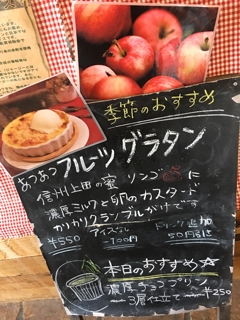 季節のおすすめ
あつあつフルーツグラタン
信州上田の蜜リンゴに
濃厚ミルクと卵のカスタード
かりかりクランブルがけです
¥550 アイスなし -100円 ドリンク追加 50円引き
本日のおすすめ☆
濃厚チョコプリン
3層仕立て ¥250